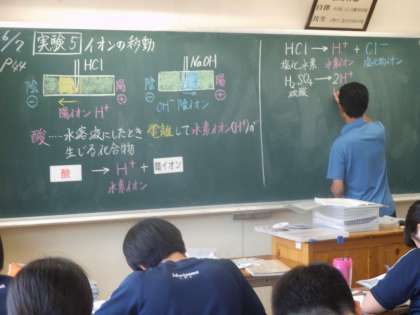 6/7
実験5 イオンの移動
P44
HCl
NaOH
陰 陽
⊖ ⊕
陰 陽
⊖ ⊕
陽イオン H⁺
OH⁻ 陰イオン
酸……水溶液にしたとき電離して水素イオン(H⁺)が
生じる化合物
酸 → H⁺ + 陰イオン
水素イオン
HCl → H⁺ + Cl⁻
塩化水素 水素イオン 塩化物イオン
H₂SO₄ → 2H⁺
硫酸